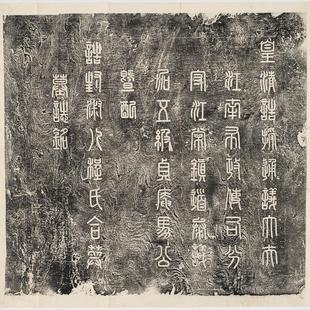 皇清誥授通議大夫
江南布政使司分
守江常鎮道參議
加五級貞庵馬公
暨配
誥封淑人程氏合葬
墓誌銘